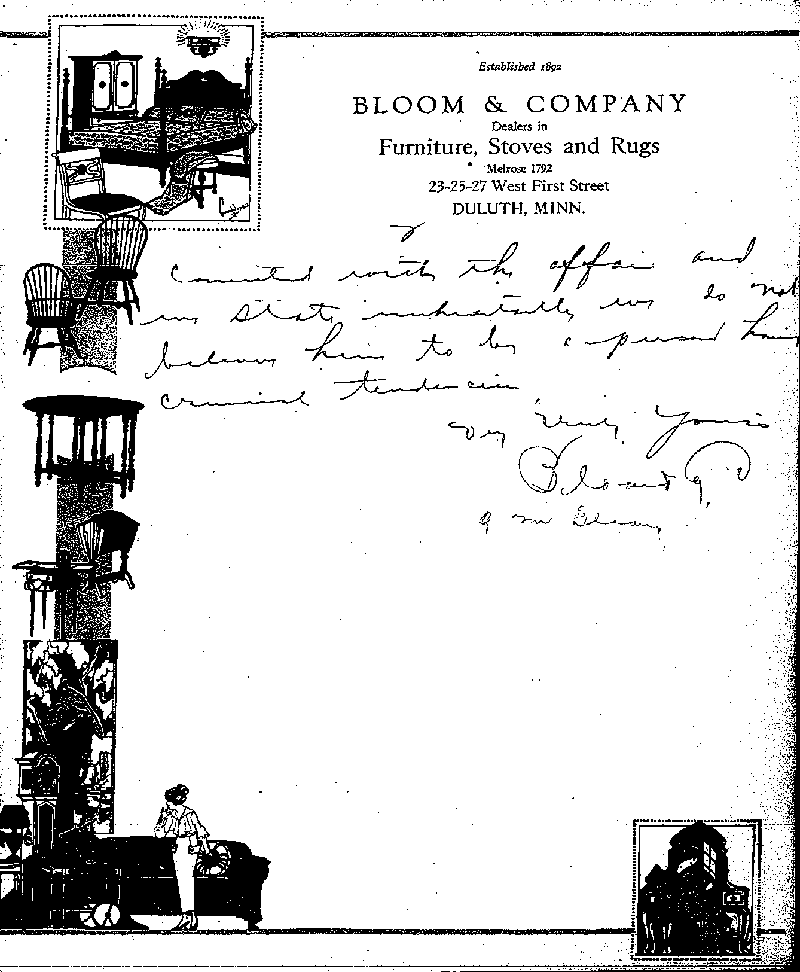 Established 1892
BLOOM & COMPANY
Dealers in
Furniture, Stoves and Rugs
Melrose 1792
23-25-27 West First Street
DULUTH, MINN.
2
Connected with the affair and
we state unhesitatingly we do not
believe him to be a person having
criminal tendencies
Very Truly Yours
Bloom & Co